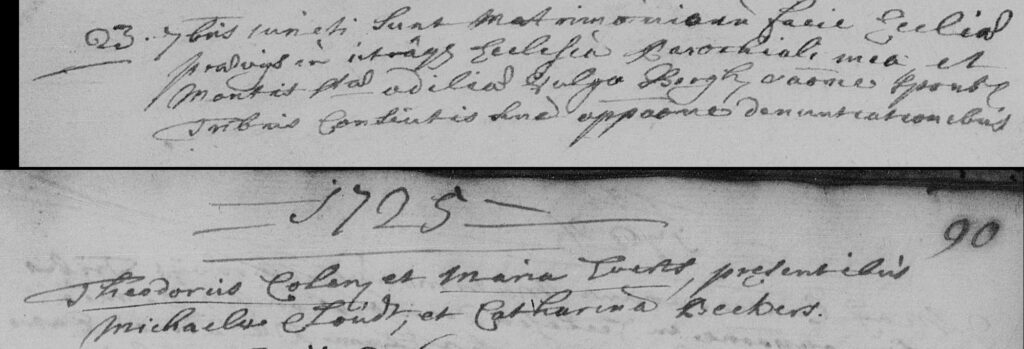 23. 7bris iuncti Sunt Matrimonium facie Ecclia
praeviis in utraq Ecclesia Parochiali mea et
Montis Stae odiliae vulgo Bergh, oaome
Tribus Consuetis sine oppoone denuntiationibus
1725
90
Theodorus Colen et Maria Everts, pręsentibus
Michaele Cloudt, et Catharina Beckers.